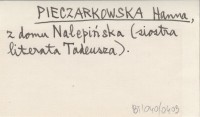 PIECZARKOWSKA Hanna,
z domu Nalepińska (siostra
literata Tadeusza).
BI/040/0403